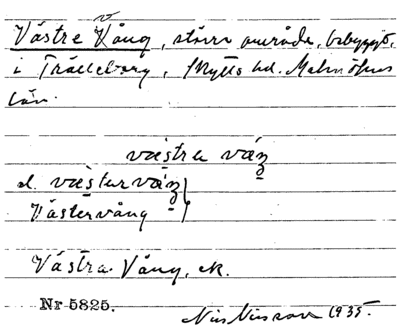 Västre Vång, större område, bebyggt,
i Trälleborg, Skytts hd. Malmöhus
län.
västra váŋ
el. västerváŋ
Västervång
Västra Vång, ek.
Nr 5825.
Nils Nilsson 1935.